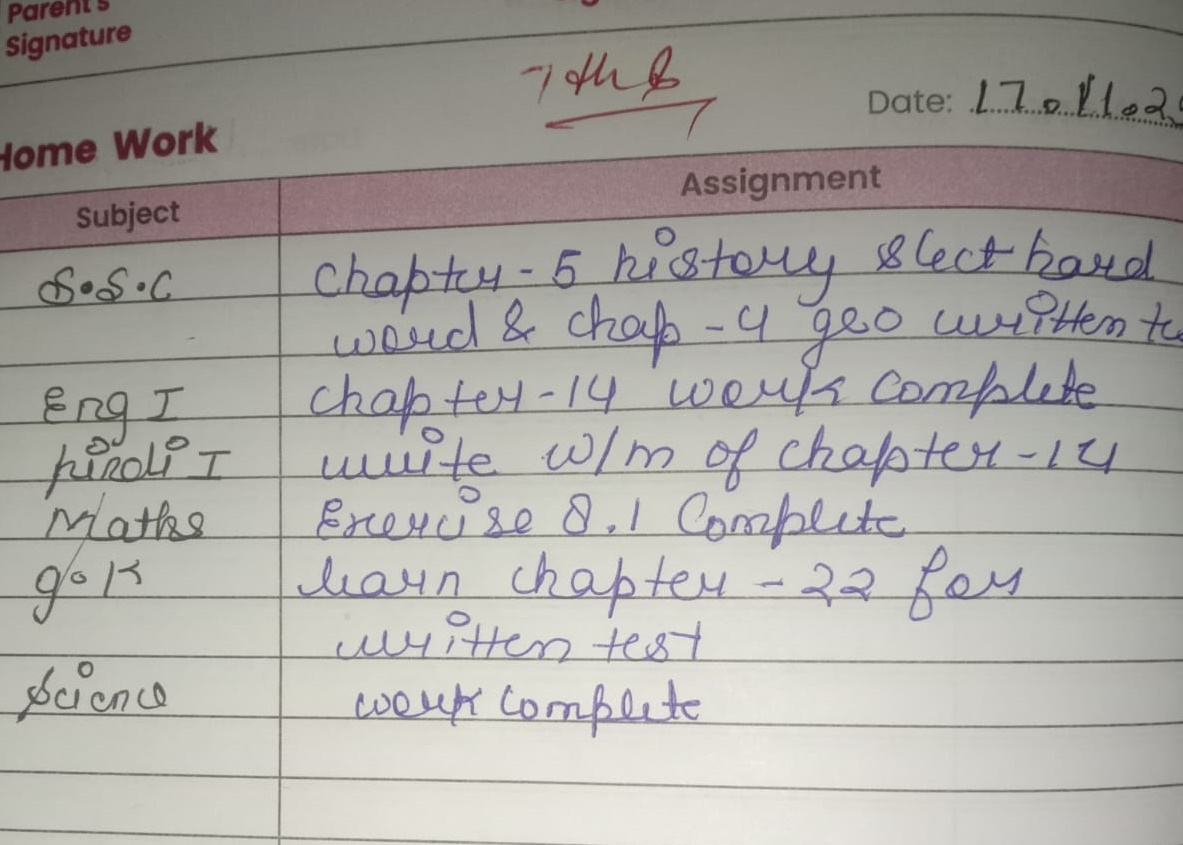 Parent's
Signature
7th B
Date: 17.11.2
Home Work
Subject Assignment
S.S.C Chapter-5 history slect hard
word & chap-4 geo written
Eng I Chapter-14 work Complete
hindi I write w/m of chapter-14
Maths Exercise 8.1 Complete
g.K learn chapter-22 for
written test
Science work complete